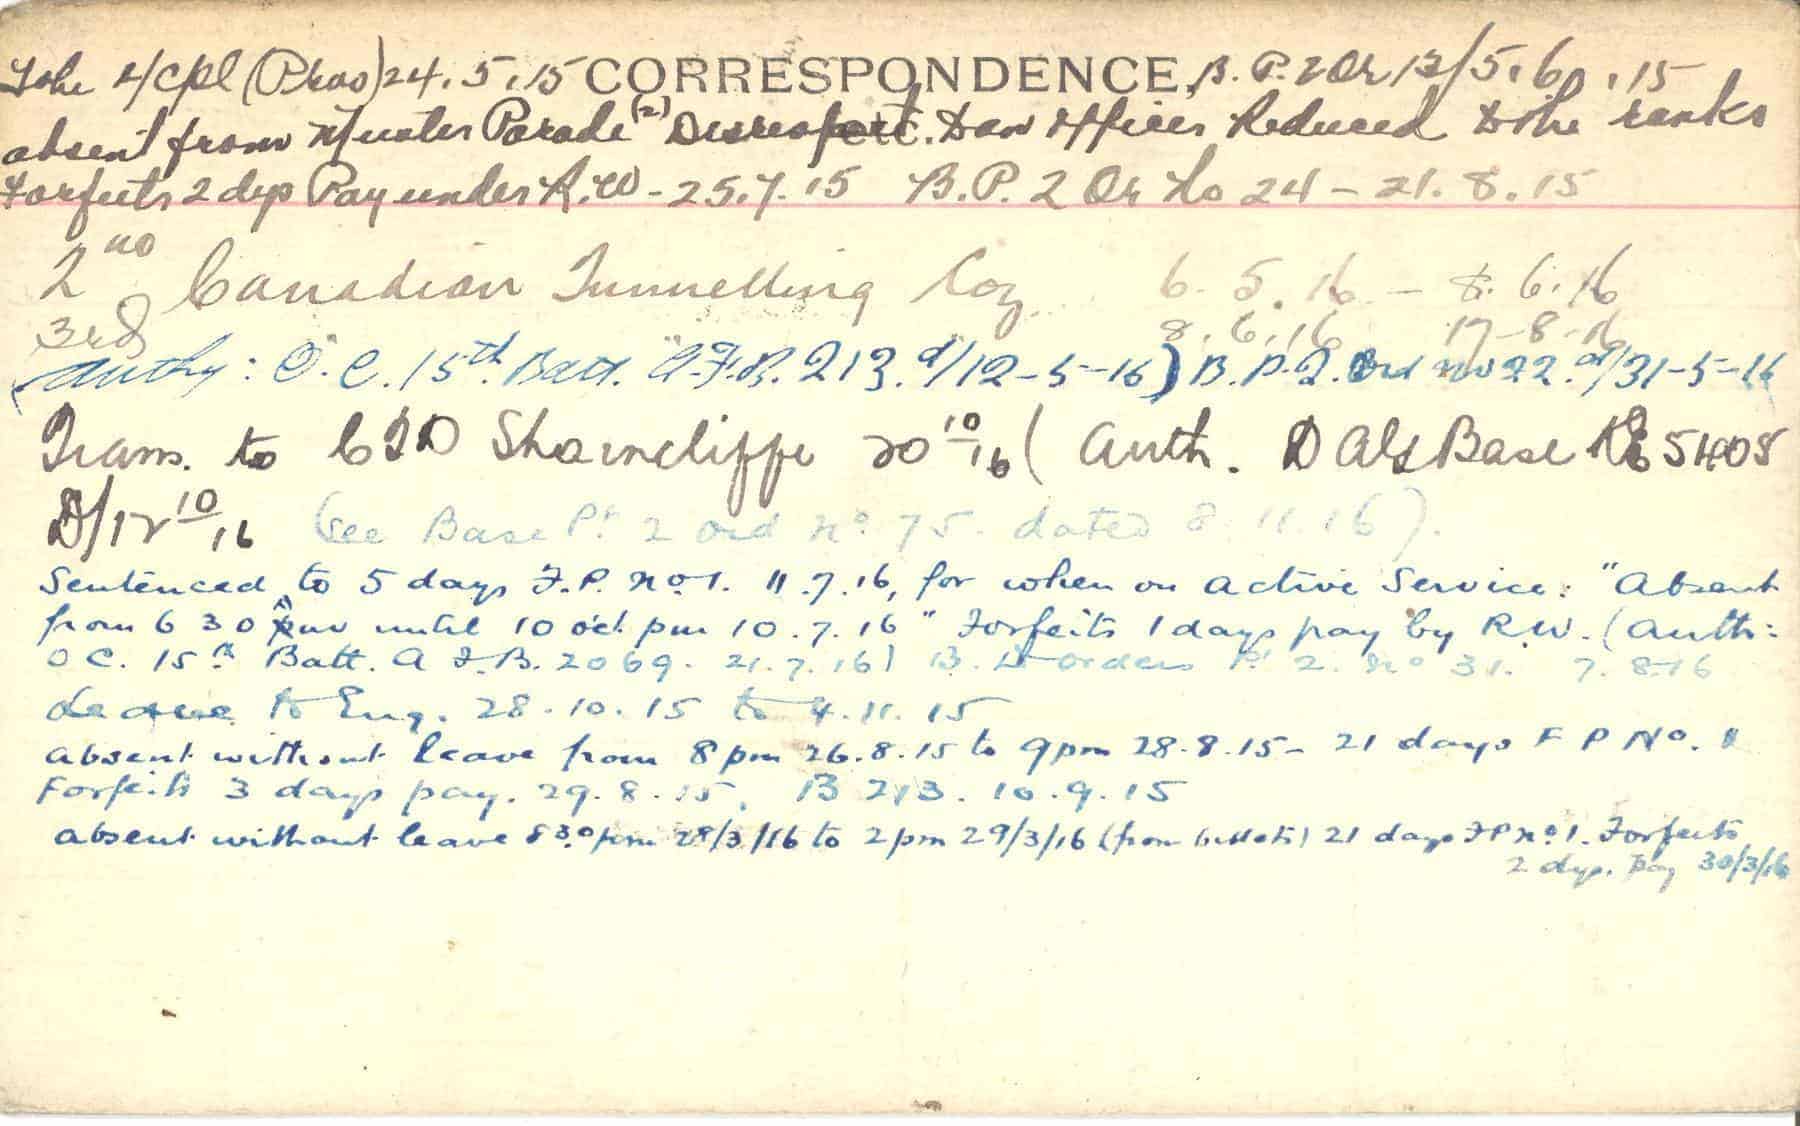 To be L/Cpl (Prov) 24.5.15 CORRESPONDENCE, B.P. 2 Or 13/5.6.15
absent from Muster Parade (2) Disrespect to an Officer Reduced to the ranks
Forfeits 2 dys Pay under R.W - 25.7.15 B.P. 2 Or No 24 - 21.8.15
2nd Canadian Tunnelling Coy 6.5.16 - 8.6.16
3rd 8.6.16 17-8-16
Authy: O.C. 15th Batt. A.F.B. 213. d/12-5-16) B.P.2. Ord no 22. d/31-5-16
Trans. to CTD Shorncliffe 20 10/16 (Auth. DAG Base 51405
D/12 10/16 (See Base Pt 2 ord no. 75. dated 8.11.16).
Sentenced to 5 days F.P. no 1. 11.7.16, for when on active Service: "Absent
from 6 30 pm until 10 ocl. pm 10.7.16" Forfeits 1 days pay by R.W. (Auth:
OC. 15th Batt. A F.B. 2069. 21.7.16) B. orders Pt 2. no 31. 7.8.16
Leave to Eng. 28.10.15 to 4.11.15
absent without leave from 8 pm 26.8.15 to 9 pm 28.8.15 - 21 days F P No. 1
Forfeits 3 days pay. 29.8.15. B 213. 10.9.15
absent without leave 8 30 pm 28/3/16 to 2 pm 29/3/16 (from billets) 21 days F P no 1. Forfeits
2 dys. pay 30/3/16